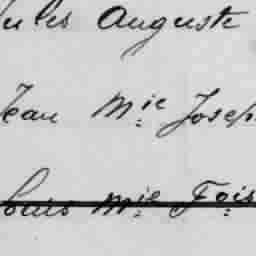 Jules Auguste
Jean M.ie Josep
Louis M.ie F.ois